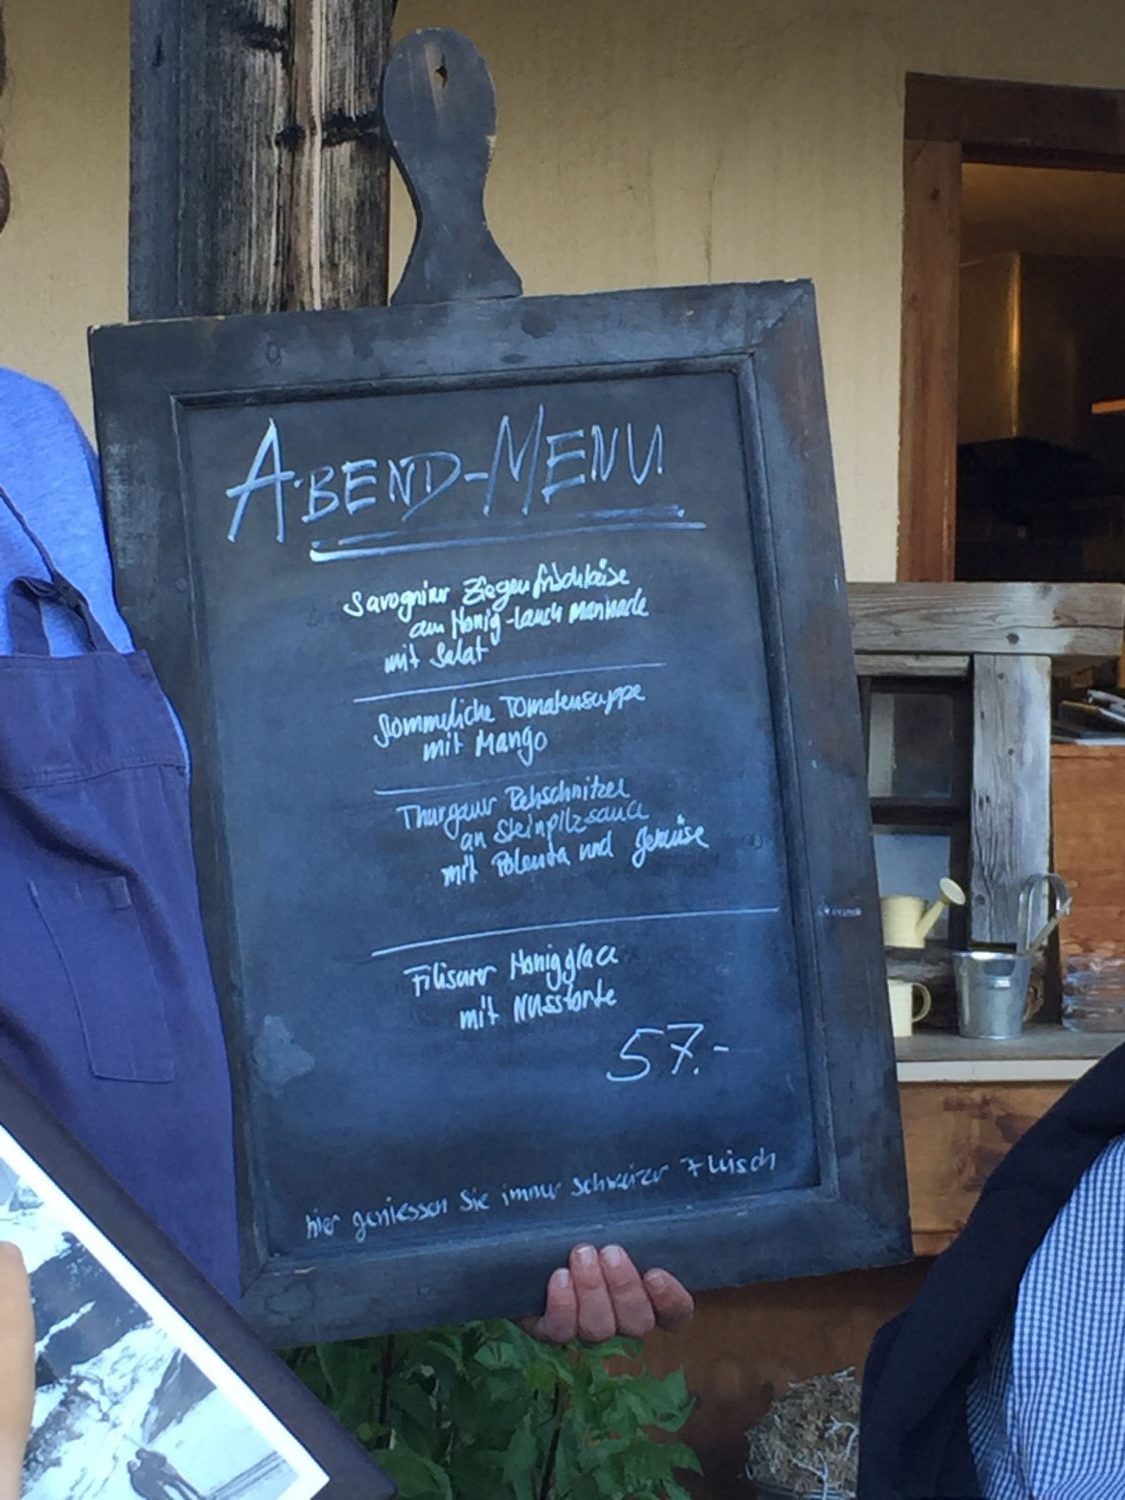 ABEND-MENU
Savogniner Ziegenfrischkäse
am Honig-Lauch marinade
mit Salat
Sommerliche Tomatensuppe
mit Mango
Thurgauer Rehschnitzel
an Steinpilzsauce
mit Polenta und Gemüse
Filisurer Honigglace
mit Nusstorte
57.-
hier geniessen Sie immer schweizer Fleisch